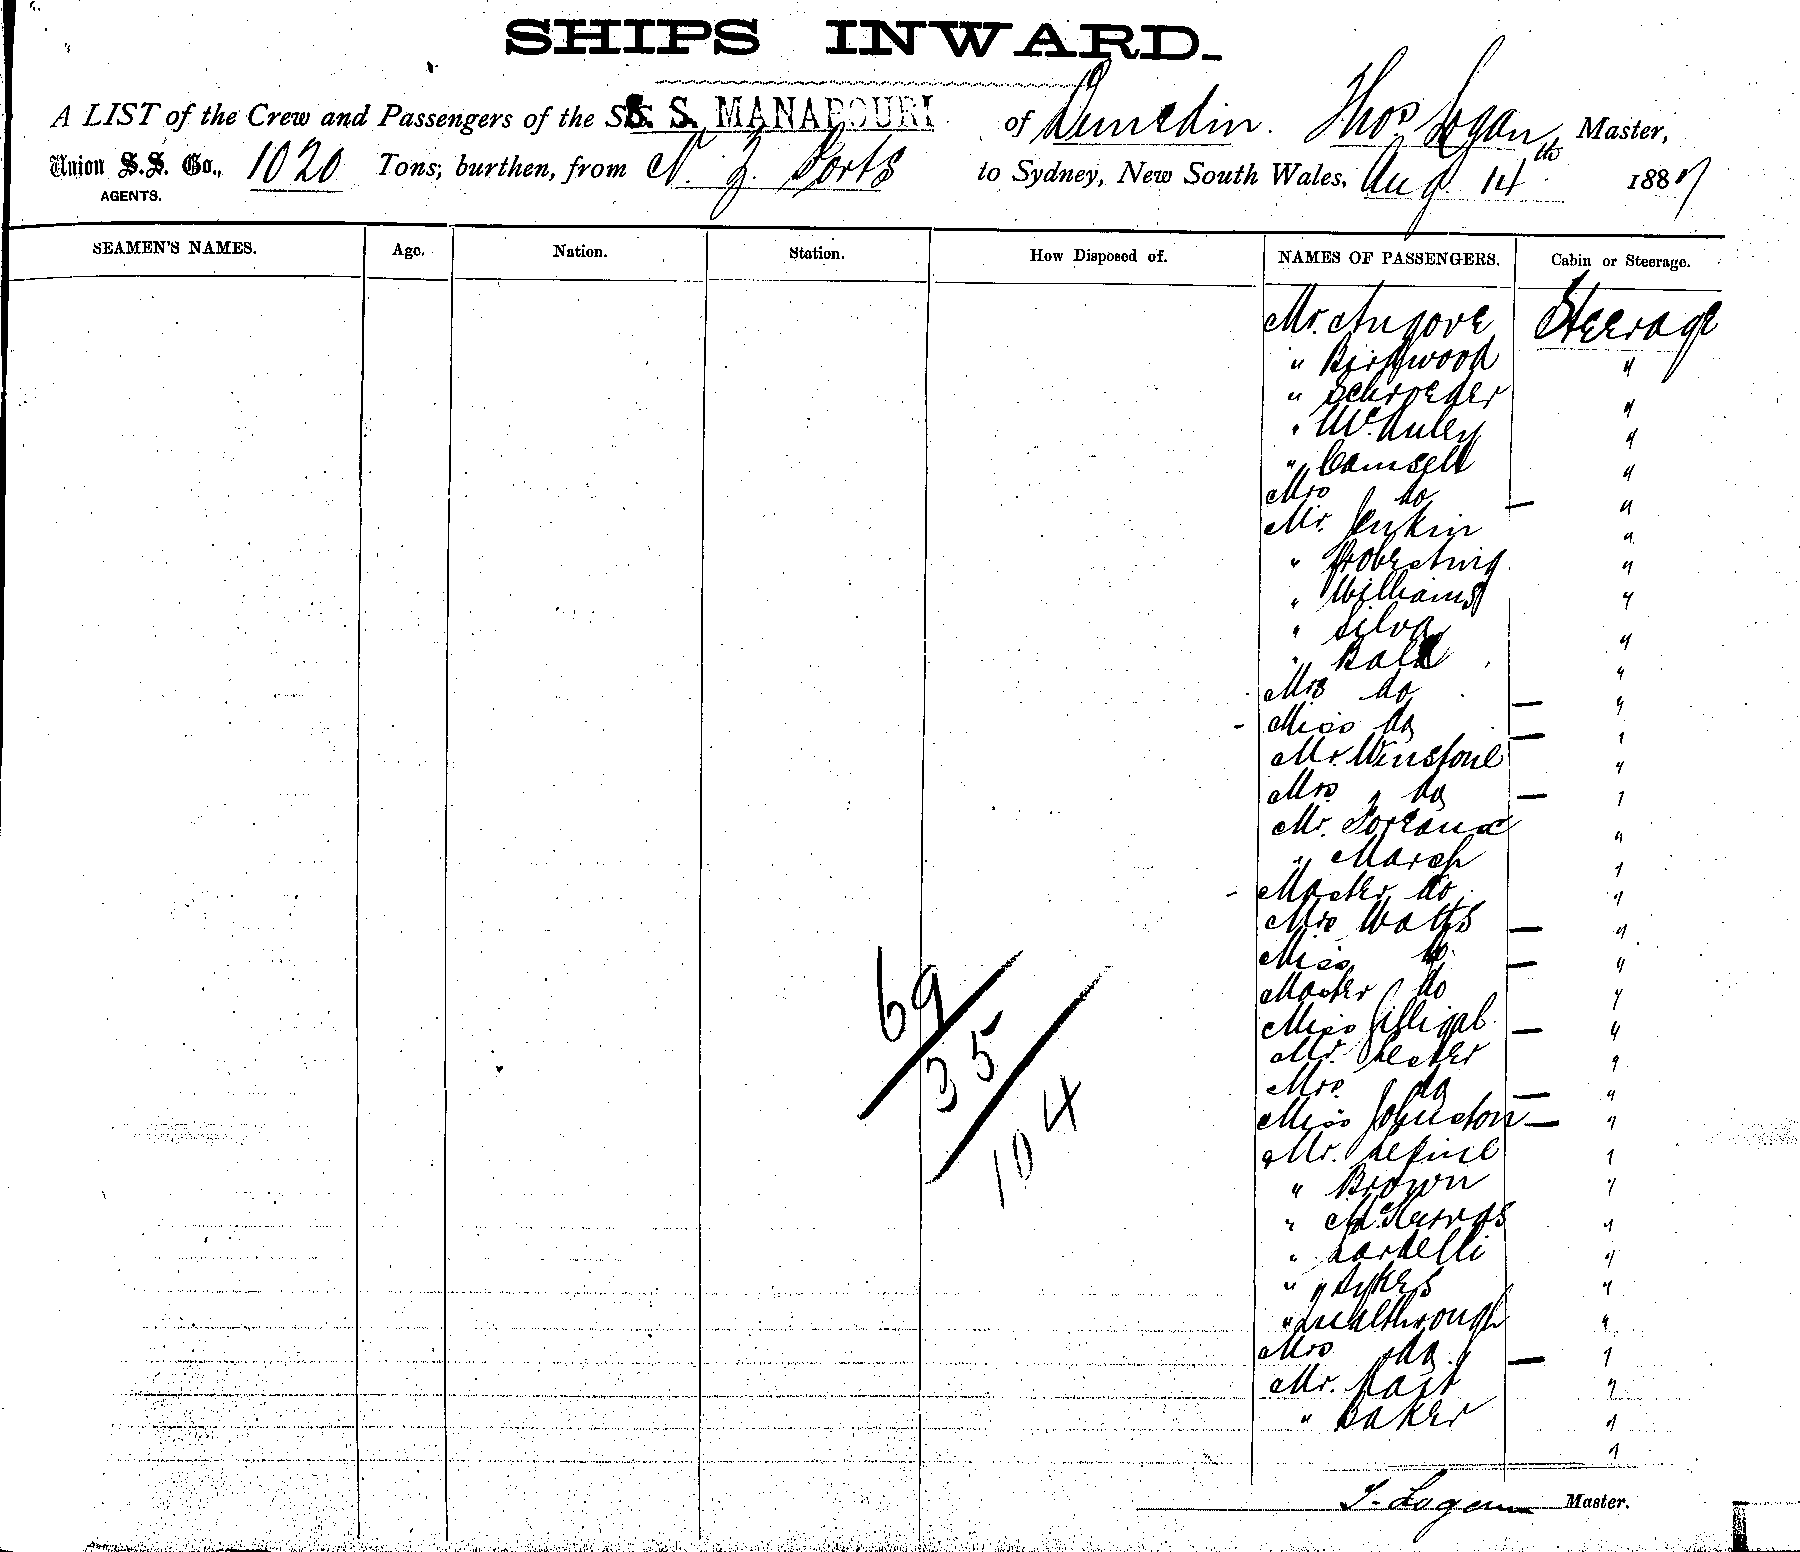 SHIPS INWARD.
A LIST of the Crew and Passengers of the S.S. S. MANAPOURI of Dunedin. Thos Logan Master,
Union S.S. Co., 1020 Tons; burthen, from N. Z. Ports to Sydney, New South Wales, Aug 14th 1887
AGENTS.
SEAMEN'S NAMES. Age. Nation. Station. How Disposed of. NAMES OF PASSENGERS. Cabin or Steerage.
Mr. Angove Steerage
" Birchwood "
" Schroeder "
" McAuley "
" Camsell "
Mrs do — "
Mr. Jenkin "
" "
" Williams "
" Silva "
" Ball "
Mrs do — "
- Miss do — "
Mr. Winstone "
Mrs " do — "
Mr. "
" March "
- Master do "
Mrs Watts — "
Miss do — "
Master do "
Miss — "
Mr. Lester "
Mrs. do — "
Miss Johnston — "
Mr. "
" Brown "
" "
" Lardelli "
" Sykes "
" "
Mrs do — "
Mr. "
" Baker "
"
69
35
104
T. Logan Master.